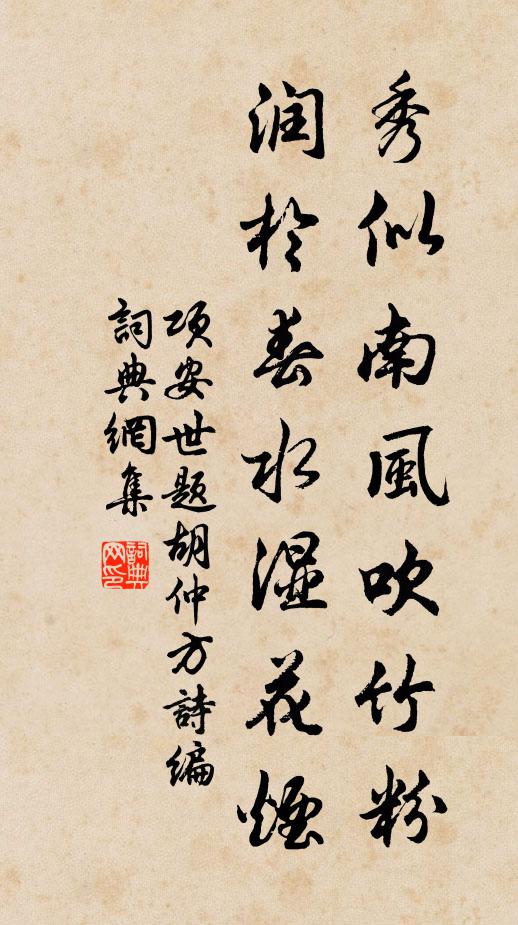 秀似南風吹竹粉
润於春水湿花煙
项安世题胡仲方詩编
詞典網集
詞典
网印